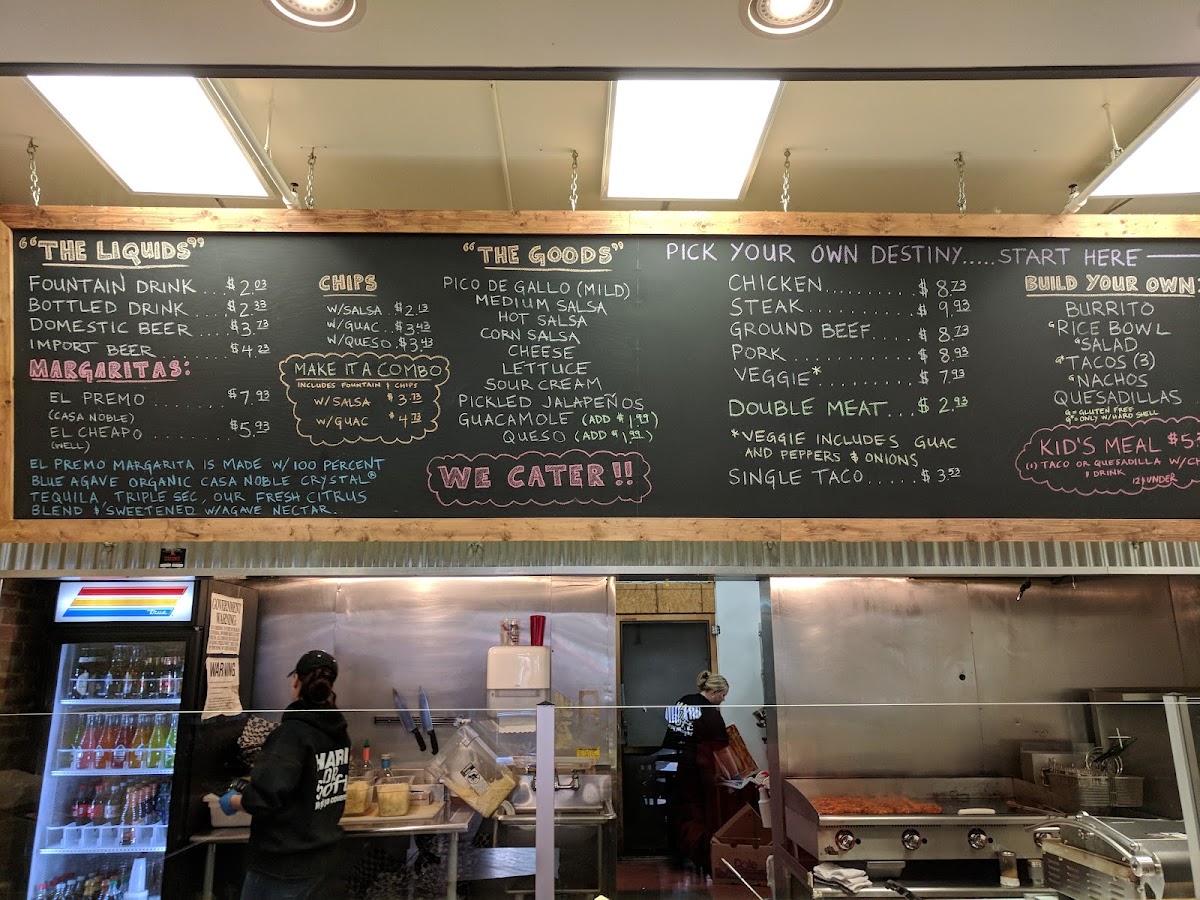 "THE LIQUIDS"
FOUNTAIN DRINK ... $2.03
BOTTLED DRINK ... $2.33
DOMESTIC BEER ... $3.73
IMPORT BEER ... $4.23
MARGARITAS:
EL PREMO ....... $7.93
(CASA NOBLE)
EL CHEAPO ....... $5.93
(WELL)
EL PREMO MARGARITA IS MADE W/100 PERCENT
BLUE AGAVE ORGANIC CASA NOBLE CRYSTAL®
TEQUILA, TRIPLE SEC, OUR FRESH CITRUS
BLEND & SWEETENED W/AGAVE NECTAR.
CHIPS
W/SALSA . $2.13
W/GUAC .. $3.43
W/QUESO . $3.93
MAKE IT A COMBO
INCLUDES FOUNTAIN & CHIPS
W/SALSA $3.73
W/GUAC $4.73
"THE GOODS"
PICO DE GALLO (MILD)
MEDIUM SALSA
HOT SALSA
CORN SALSA
CHEESE
LETTUCE
SOUR CREAM
PICKLED JALAPEÑOS
GUACAMOLE (ADD $1.99)
QUESO (ADD $1.99)
WE CATER!!
PICK YOUR OWN DESTINY.....START HERE
CHICKEN.......... $8.73
STEAK............ $9.93
GROUND BEEF...... $8.73
PORK............. $8.93
VEGGIE*.......... $7.93
DOUBLE MEAT... $2.93
*VEGGIE INCLUDES GUAC
AND PEPPERS & ONIONS
SINGLE TACO...... $3.53
BUILD YOUR OWN:
BURRITO
G RICE BOWL
G SALAD
G* TACOS (3)
G NACHOS
QUESADILLAS
G = GLUTEN FREE
G* = ONLY W/HARD SHELL
KID'S MEAL
(1) TACO OR QUESADILLA
& DRINK
12 & UNDER
True
GOVERNMENT
WARNING:
WARNING